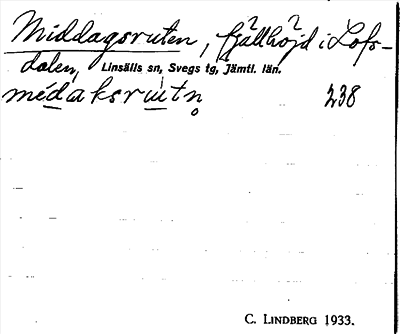 Middagsruten, fjällhöjd i Lofs-
dalen, Linsälls sn, Svegs tg, Jämtl. län.
médaksrùtn̥ 238
C. LINDBERG 1933.